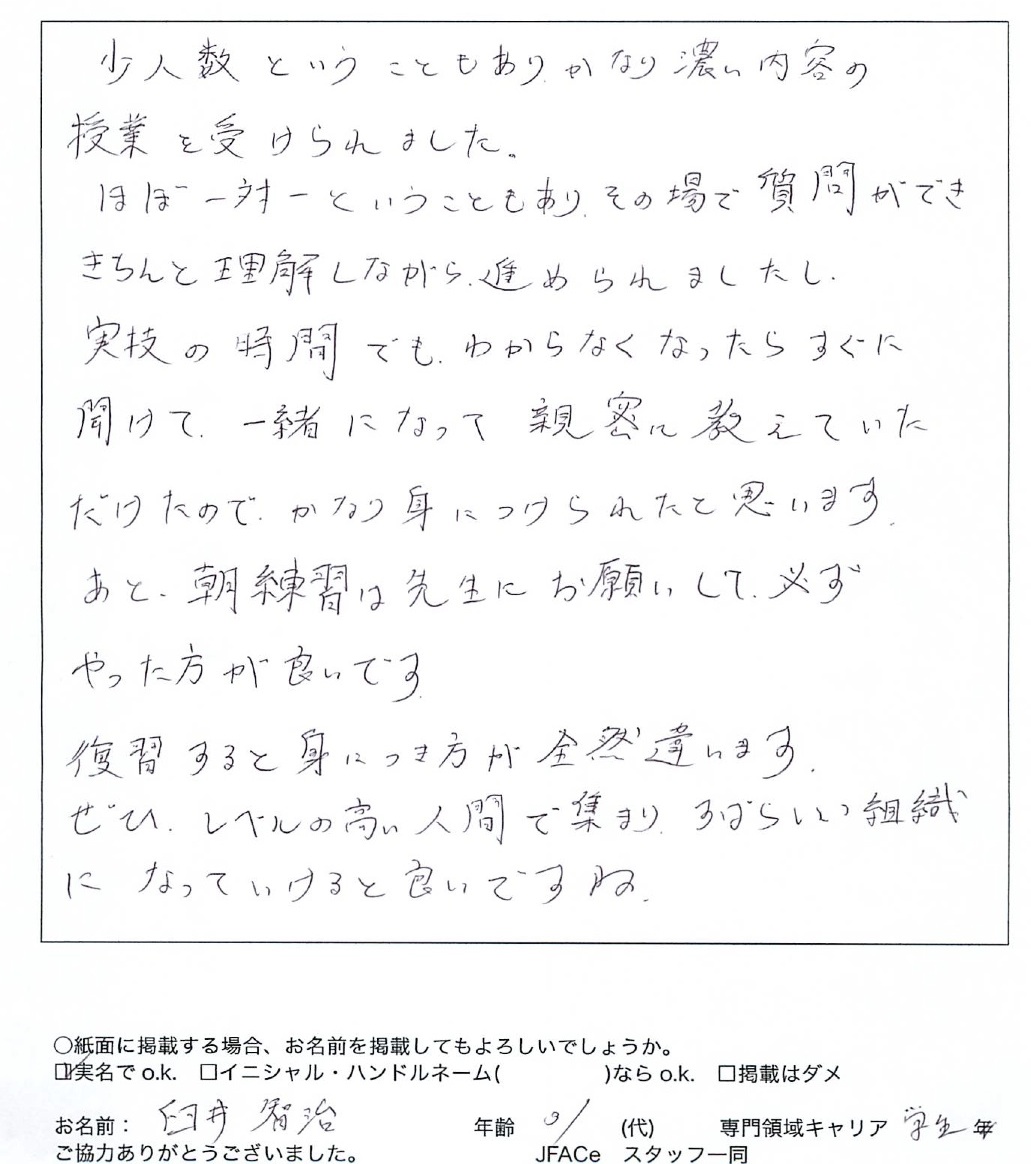 少人数ということもあり、かなり濃い内容の
授業を受けられました。
ほぼ一対一ということもあり、その場で質問ができ
きちんと理解しながら、進められましたし、
実技の時間でも、わからなくなったらすぐに
聞けて、一緒になって親密に教えていた
だけたので、かなり身につけられたと思います。
あと、朝練習は先生にお願いして、必ず
やった方が良いです。
復習すると身につき方が全然違います。
ぜひ、レベルの高い人間で集まり、すばらしい組織
になっていけると良いですね。
○紙面に掲載する場合、お名前を掲載してもよろしいでしょうか。
☑実名でo.k. □イニシャル・ハンドルネーム( )ならo.k. □掲載はダメ
お名前： 臼井 智治 年齢 (代) 専門領域キャリア 学生 年
ご協力ありがとうございました。 JFACe スタッフ一同